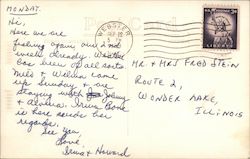 MONDAY.
Hi,
Here we are
fishing again and not
well already. Weather
has been of all sorts
Milt & Wilma came
up Sunday & are
staying with
& Alvina. Irma
is here sends her
regards.
See you,
Love
Irma & Howard
WEBSTER
LIBERTY
MR & MRS FRED STEIN
ROUTE 2,
WONDER LAKE,
ILLINOIS